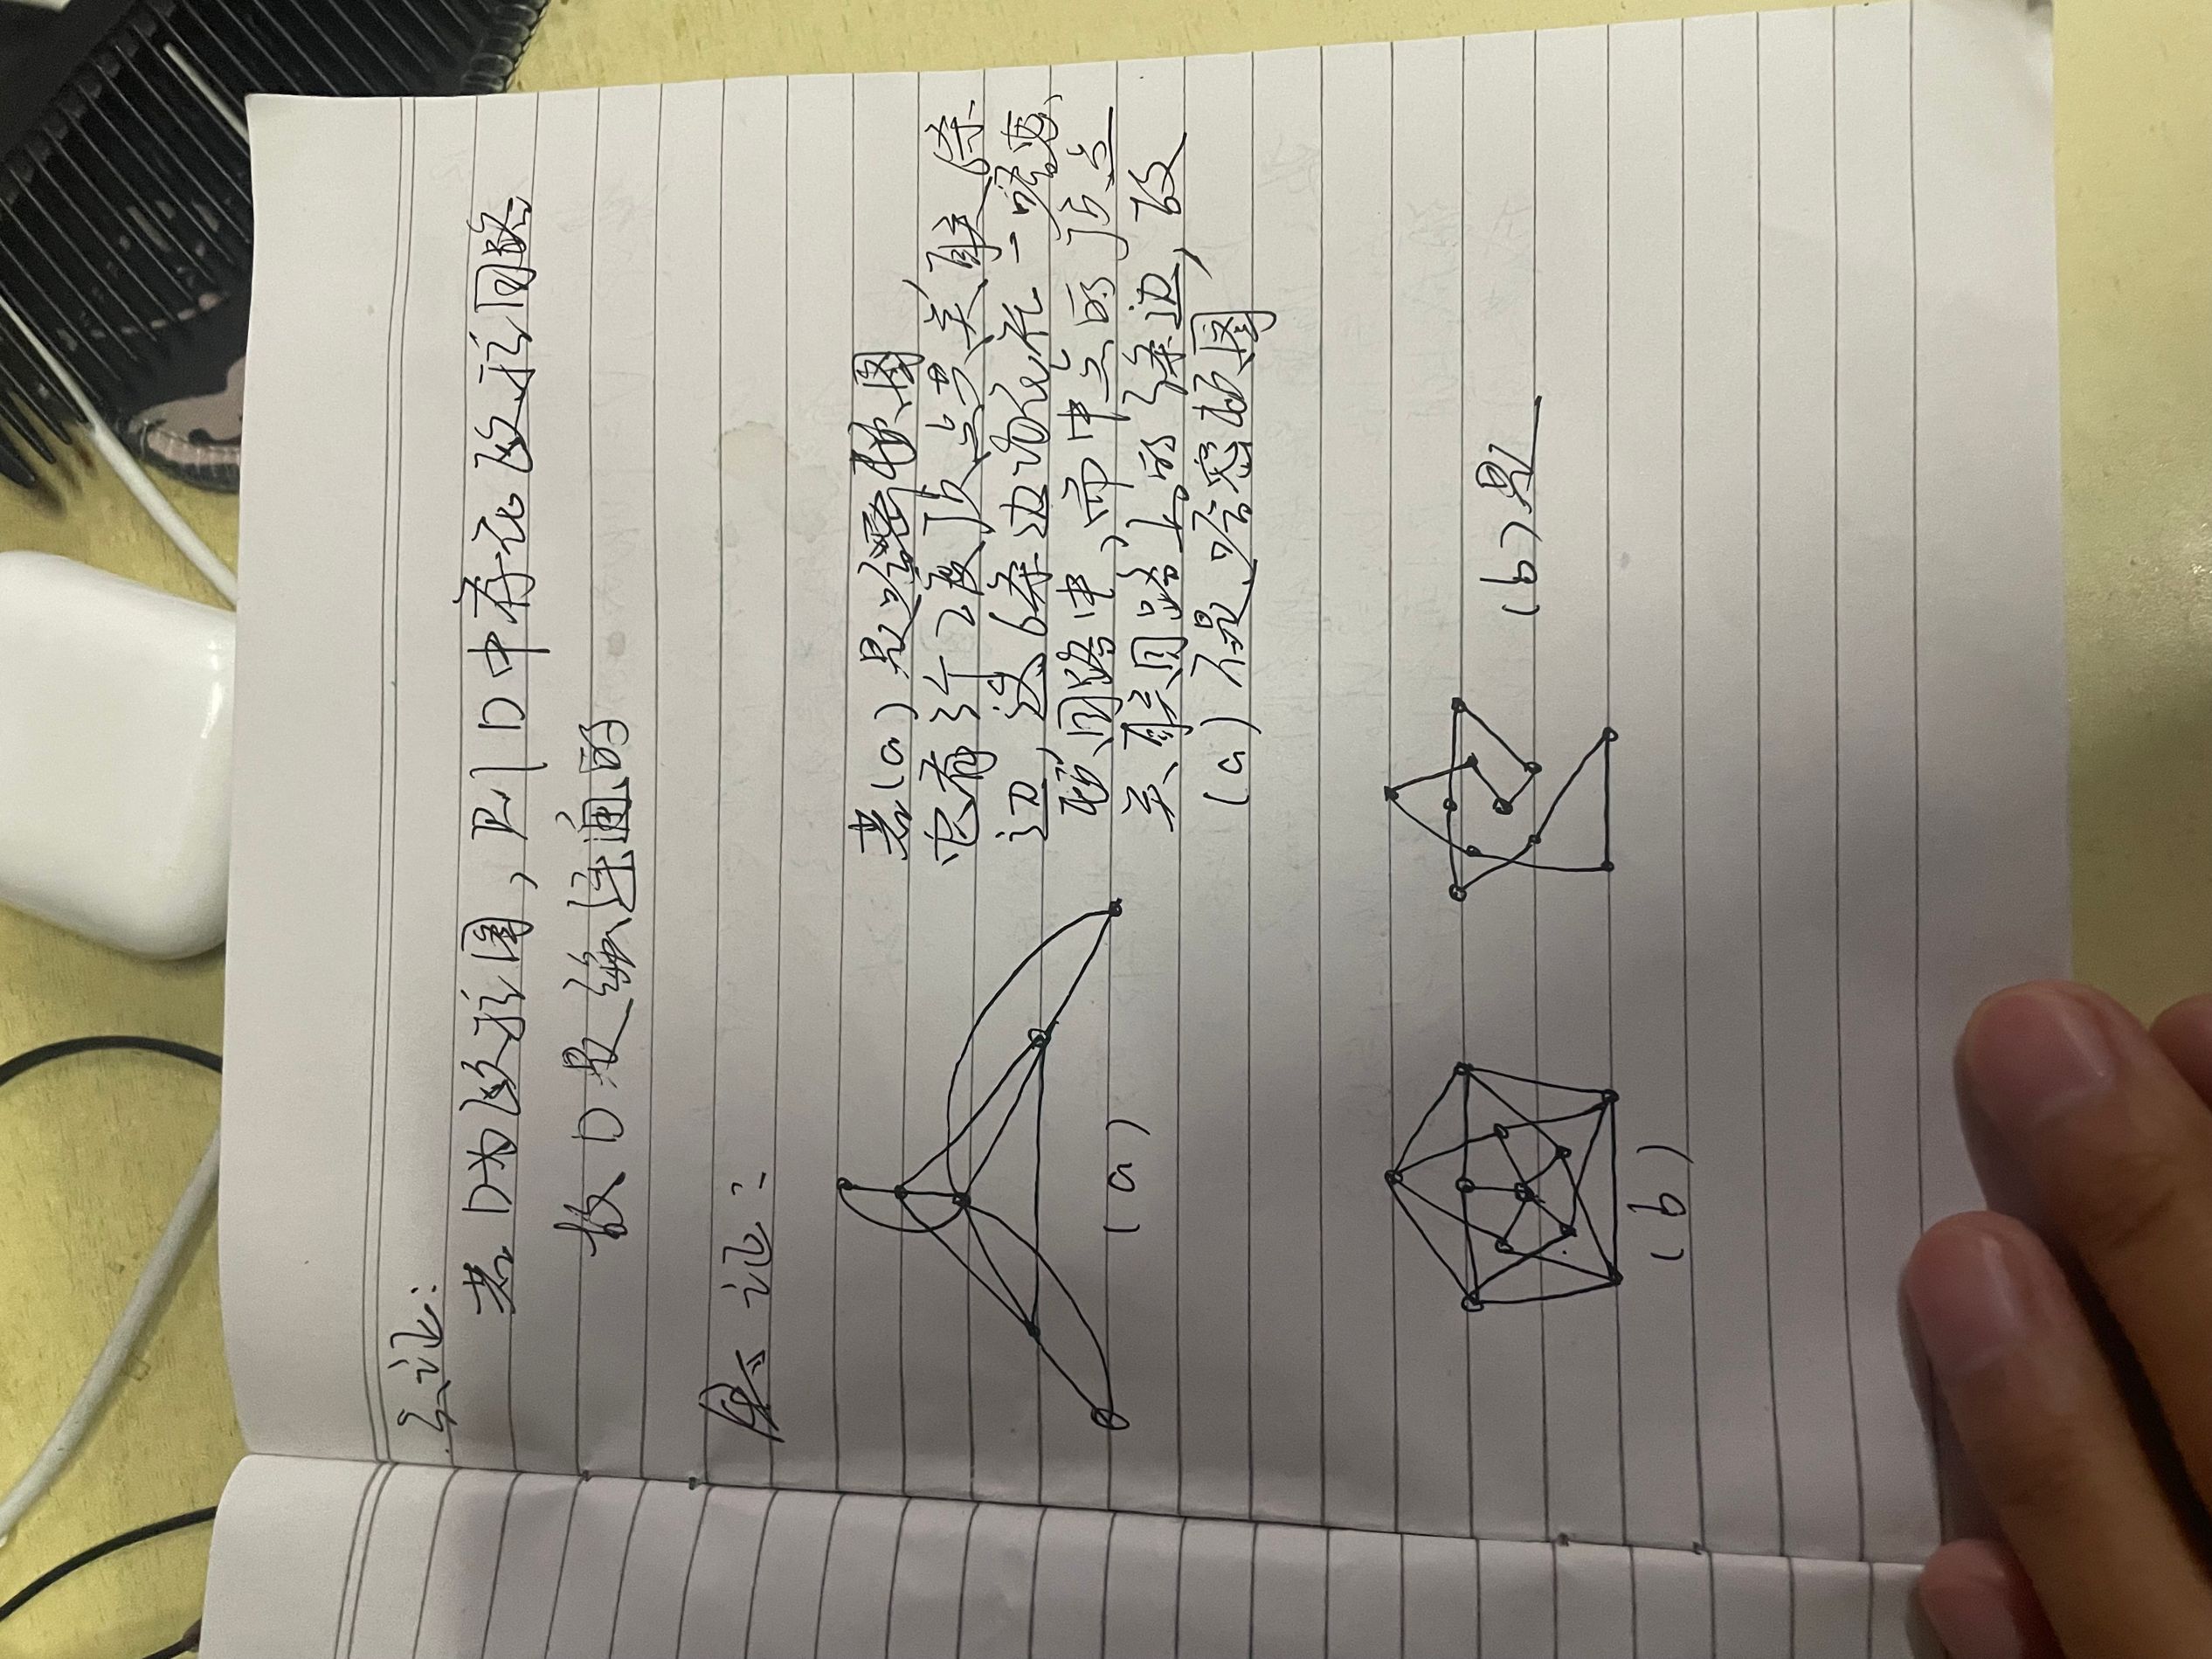 三、证:
若D为欧拉图,则D中存在欧拉回路
故D是强连通的
四、证:
若(a)是哈密顿图,
它有3个2度顶点共关联6条
边,这6条边均在在一哈密
顿回路中,而中点的顶点
关联回路上的3条边,故
(a)不是哈密顿图
(a)
(b)是
(b)